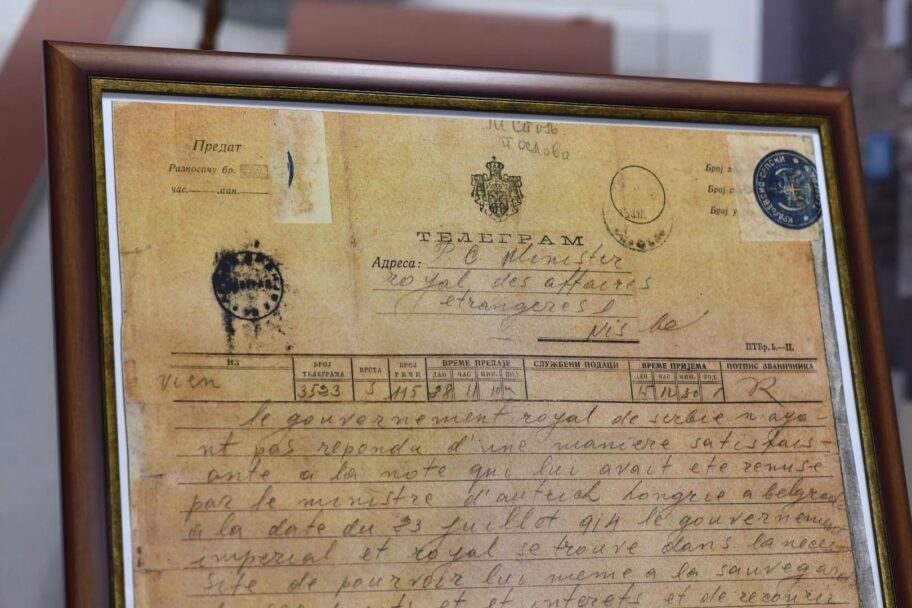 Предат
Разносачу бр.
час. мин.
Послова
Број
Број
Број
КРАЉЕВСКО СРПСКИ
ТЕЛЕГРАМ
Адреса: Minister
royal des affaires
etrangeres
Nis
ПТБр. 5.—II.
ИЗ
БРОЈ ТЕЛЕГРАМА
ВРСТА
БРОЈ РЕЧИ
ВРЕМЕ ПРЕДАЈЕ
СЛУЖБЕНИ ПОДАЦИ
ВРЕМЕ ПРИЈЕМА
ПОТПИС ЗВАНИЧНИКА
ДАН ЧАС МИН. ПОД.
ДАН ЧАС МИН. ПОД.
Vien
3523
115
28 11 10
12 30
le gouvernement royal de serbie n ayo-
nt pas repondu d'une maniere satisfais-
ante a la note qui lui avait ete remise
par le ministre d'autrich hongrie a belgrade
a la date du 23 juillot 914 le gouvernement
imperial et royal se trouve dans la neces-
site de pourvoir lui meme a la sauvegarde
et interets et de recouri